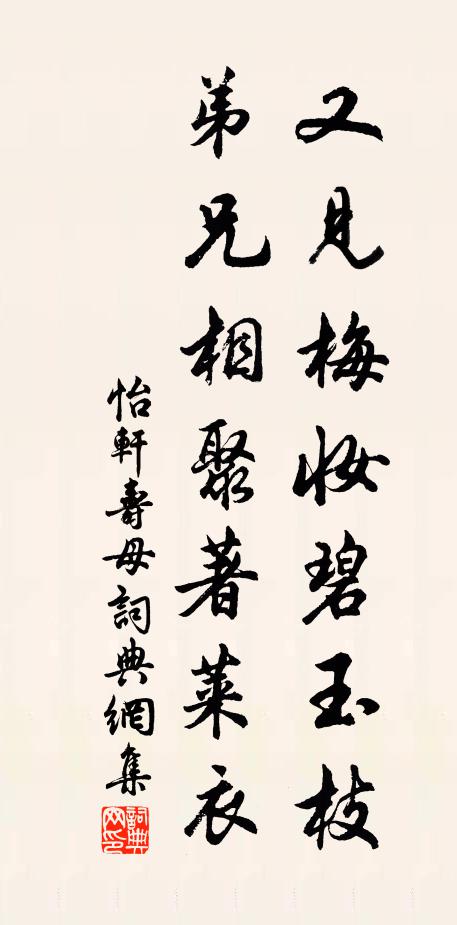 又見梅妝碧玉枝
弟兄相聚著萊衣
怡軒壽母詞典網集
詞典網印